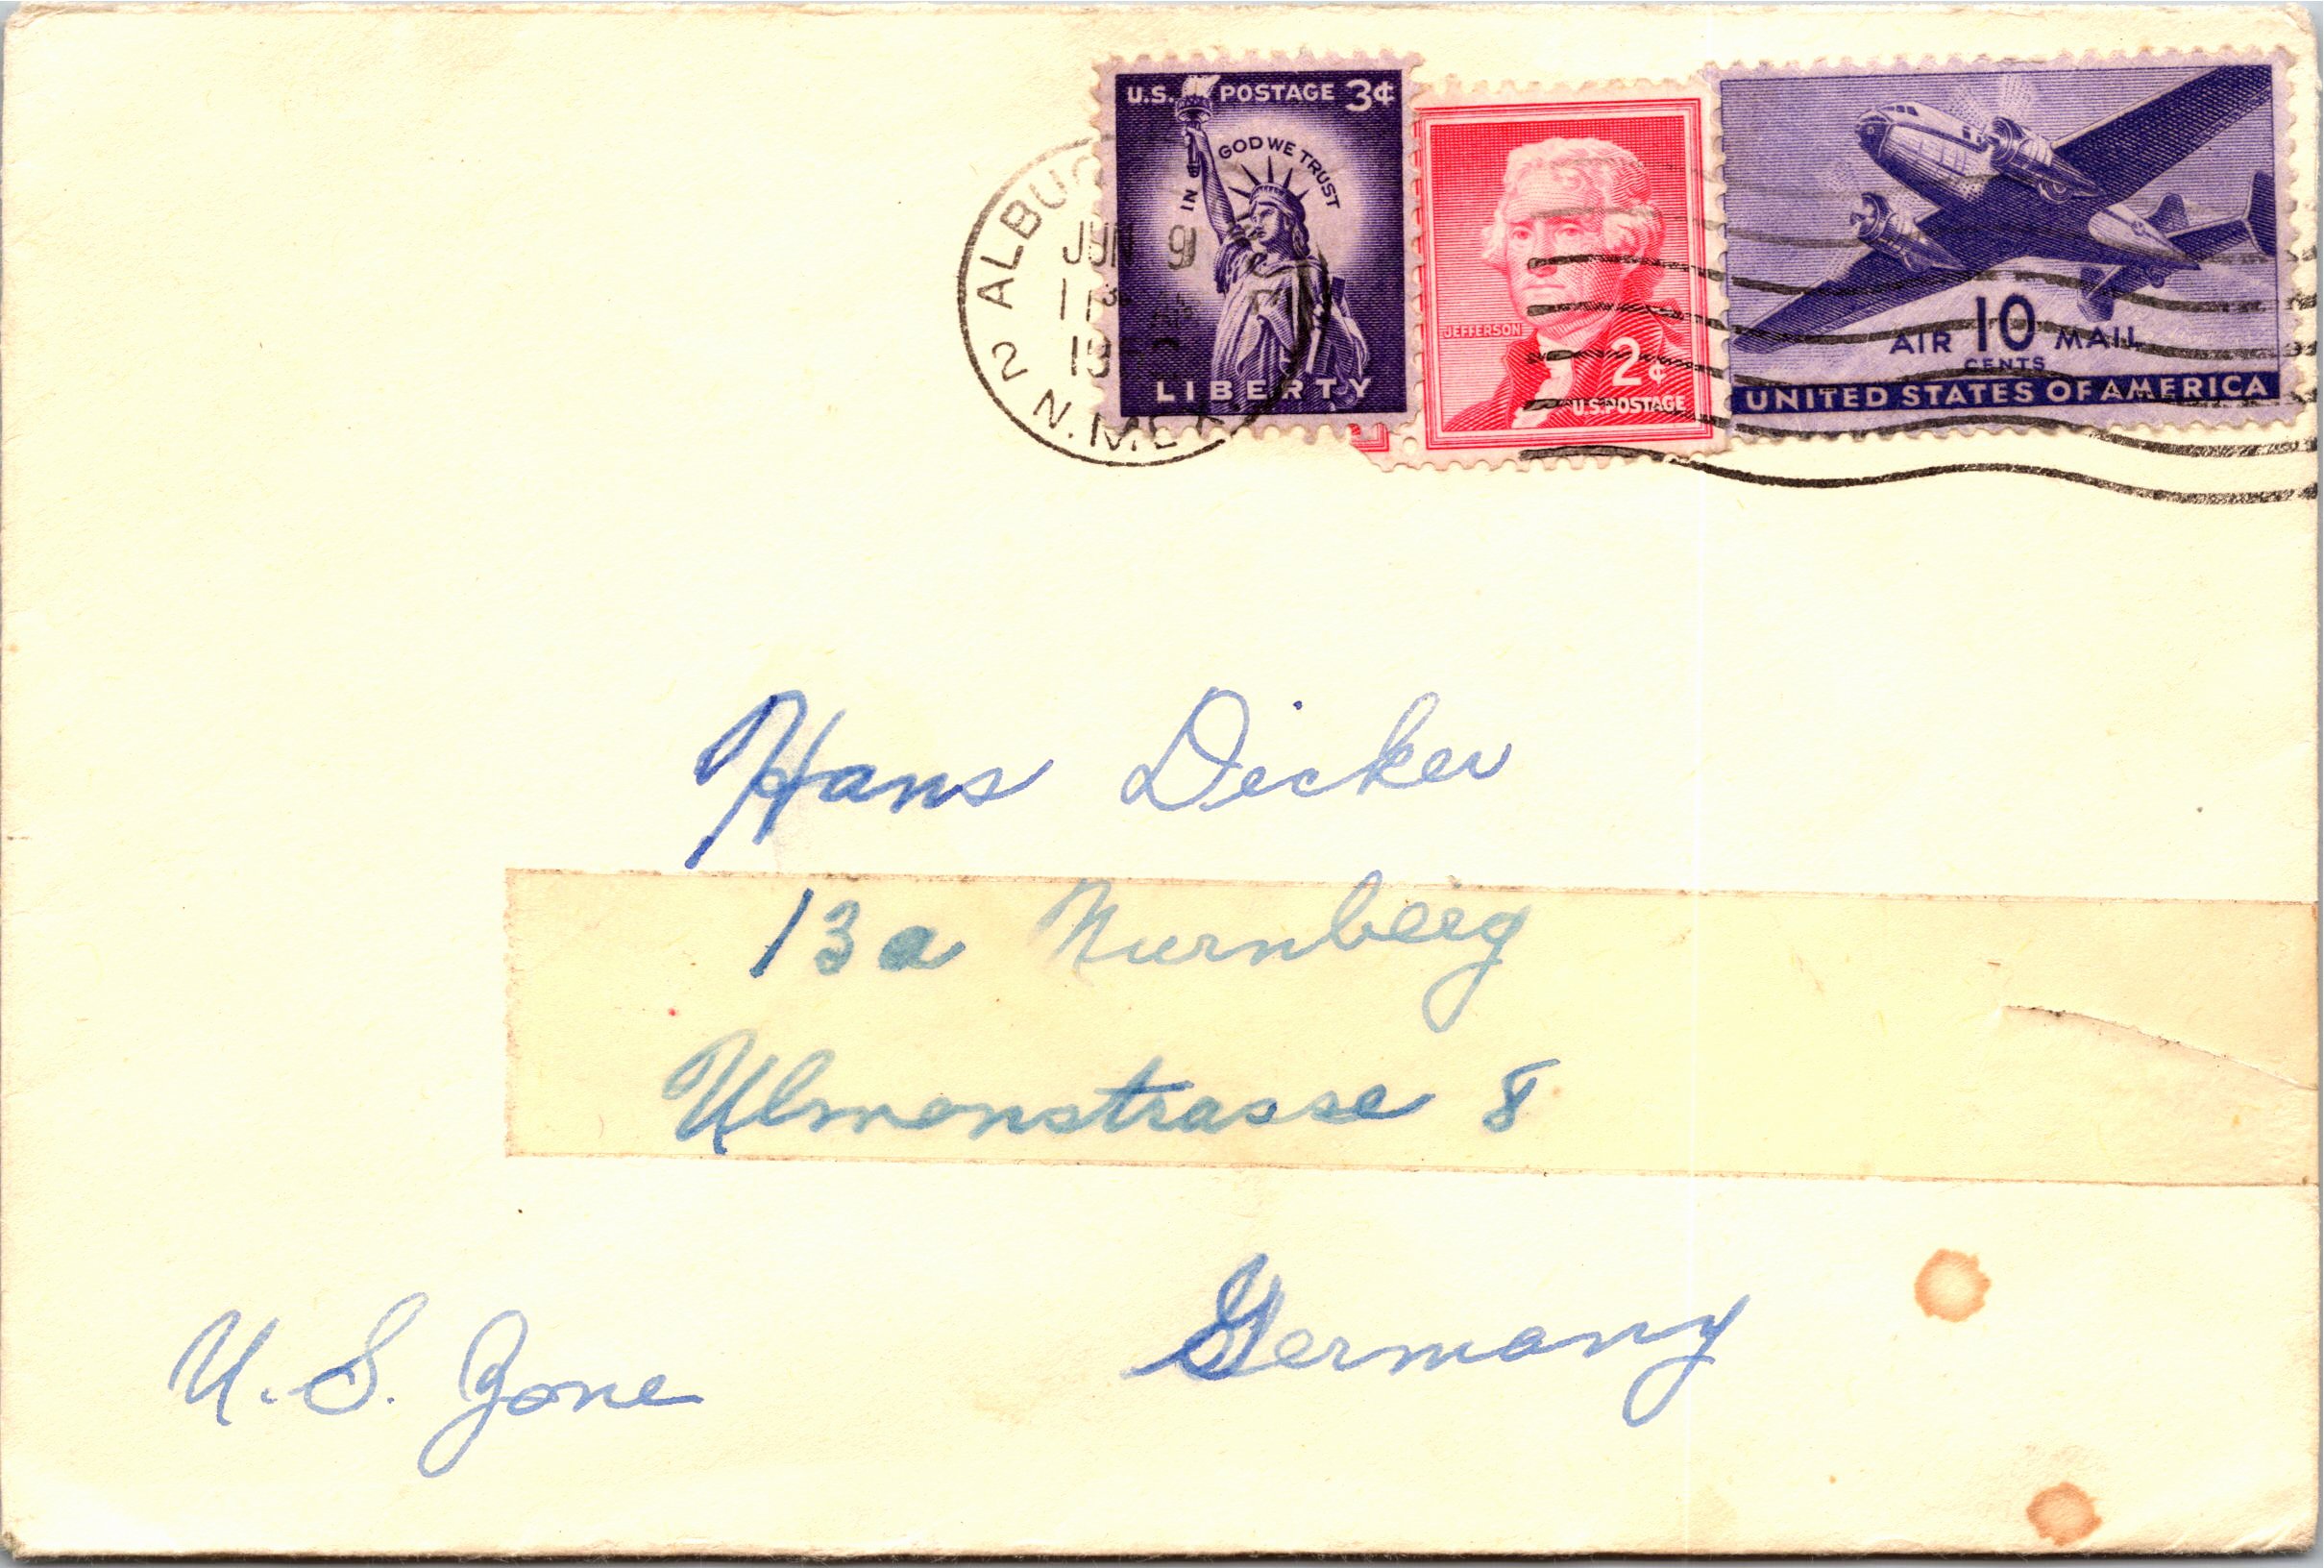 U.S. POSTAGE 3¢
IN GOD WE TRUST
LIBERTY
JEFFERSON
2¢
U.S. POSTAGE
AIR 10 MAIL
CENTS
UNITED STATES OF AMERICA
JUN 9
2 N.MEX.
Hans Dicker
13a Nurnberg
Ulmenstrasse 8
Germany
U.S. Zone